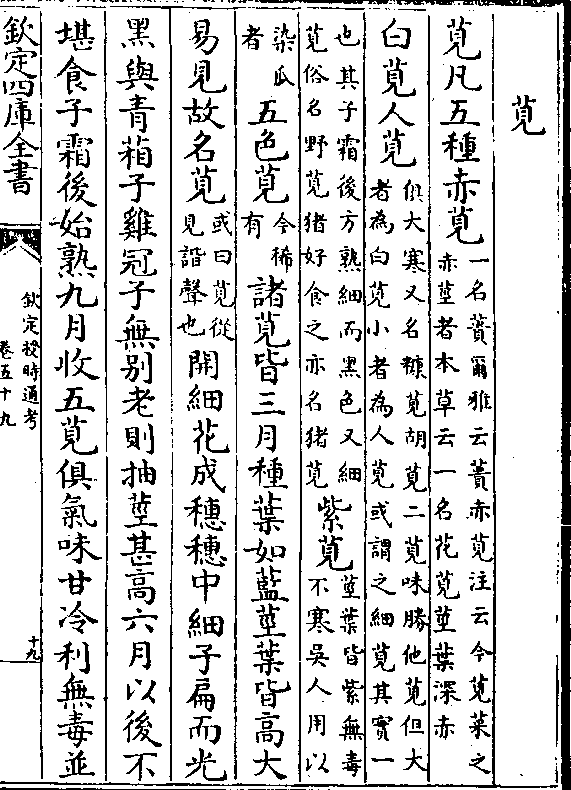 莧
莧凡五種赤莧
一名蕢爾雅云蕢赤莧注云今莧菜之
赤莖者本草云一名花莧莖葉深赤
白莧人莧
俱大寒又名糠莧胡莧二莧味勝他莧但大
者為白莧小者為人莧或謂之細莧其實一
也其子霜後方熟細而黑色又細
莧俗名野莧猪好食之亦名猪莧
紫莧
莖葉皆紫無毒
不寒吳人用以
染瓜
者
五色莧
今稀
有
諸莧皆三月種葉如藍莖葉皆高大
易見故名莧
或曰莧從
見諧聲也
開細花成穗穗中細子扁而光
黑與青葙子雞冠子無別老則抽莖甚高六月以後不
堪食子霜後始熟九月收五莧俱氣味甘冷利無毒並
欽定四庫全書
欽定授時通考
卷五十九
十九